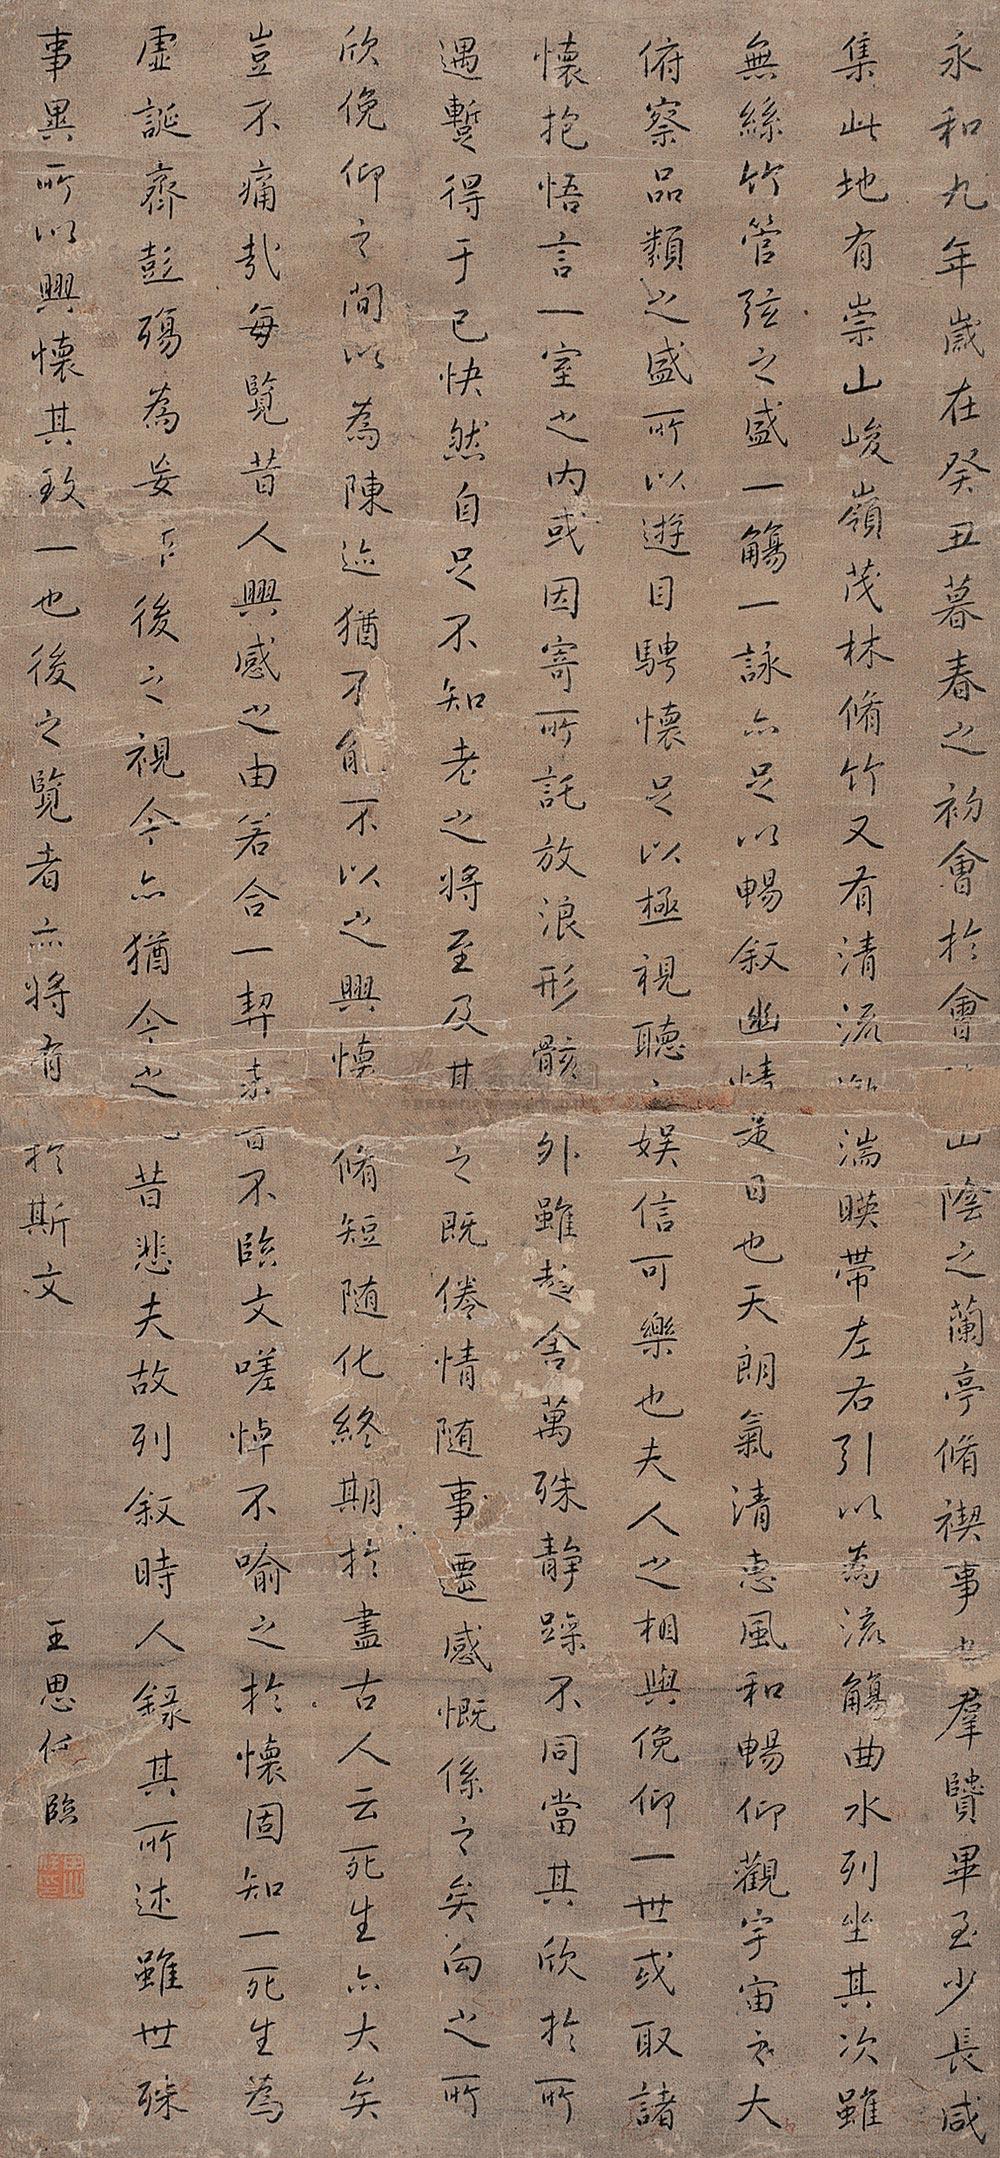 永和九年歲在癸丑暮春之初會於會山陰之蘭亭脩禊事也羣賢畢至少長咸
集此地有崇山峻嶺茂林脩竹又有清流湍暎帶左右引以為流觴曲水列坐其次雖
無絲竹管弦之盛一觴一詠亦足以暢敘幽情是日也天朗氣清惠風和暢仰觀宇宙之大
俯察品類之盛所以遊目騁懷足以極視聽之娛信可樂也夫人之相與俛仰一世或取諸
懷抱悟言一室之內或因寄所託放浪形骸外雖趍舍萬殊靜躁不同當其欣於所
遇蹔得于己快然自足不知老之將至及其之既倦情随事遷感慨係之矣向之所
欣俛仰之間以為陳迹猶不能不以之興懷脩短随化終期於盡古人云死生亦大矣
豈不痛哉每覽昔人興感之由若合一契未甞不臨文嗟悼不喻之於懷固知一死生為
虛誕齊彭殤為妄後之視今亦猶今之昔悲夫故列敘時人錄其所述雖世殊
事異所以興懷其致一也後之覽者亦將有於斯文
王思任臨